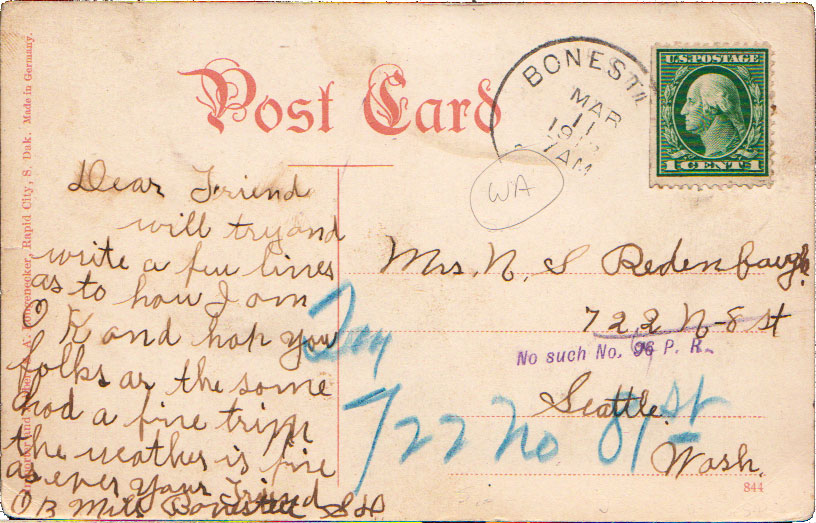 Post Card
BONEST
MAR
11
191
7AM
U.S. POSTAGE
1 CENT 1
WA
Dear Friend
will try and
write a few lines
as to how I am
O K and hop you
folks ar the some
had a fine tripp
the weather is fine
as ever your Friend
O B Mills Bonesteel S D
Mrs. N. S Redenbaugh.
722 N-8 st
No such No. 96 P. R.
Seattle.
Wash.
Try
722 No 89 st
844
Rapid City, S. Dak. Made in Germany.